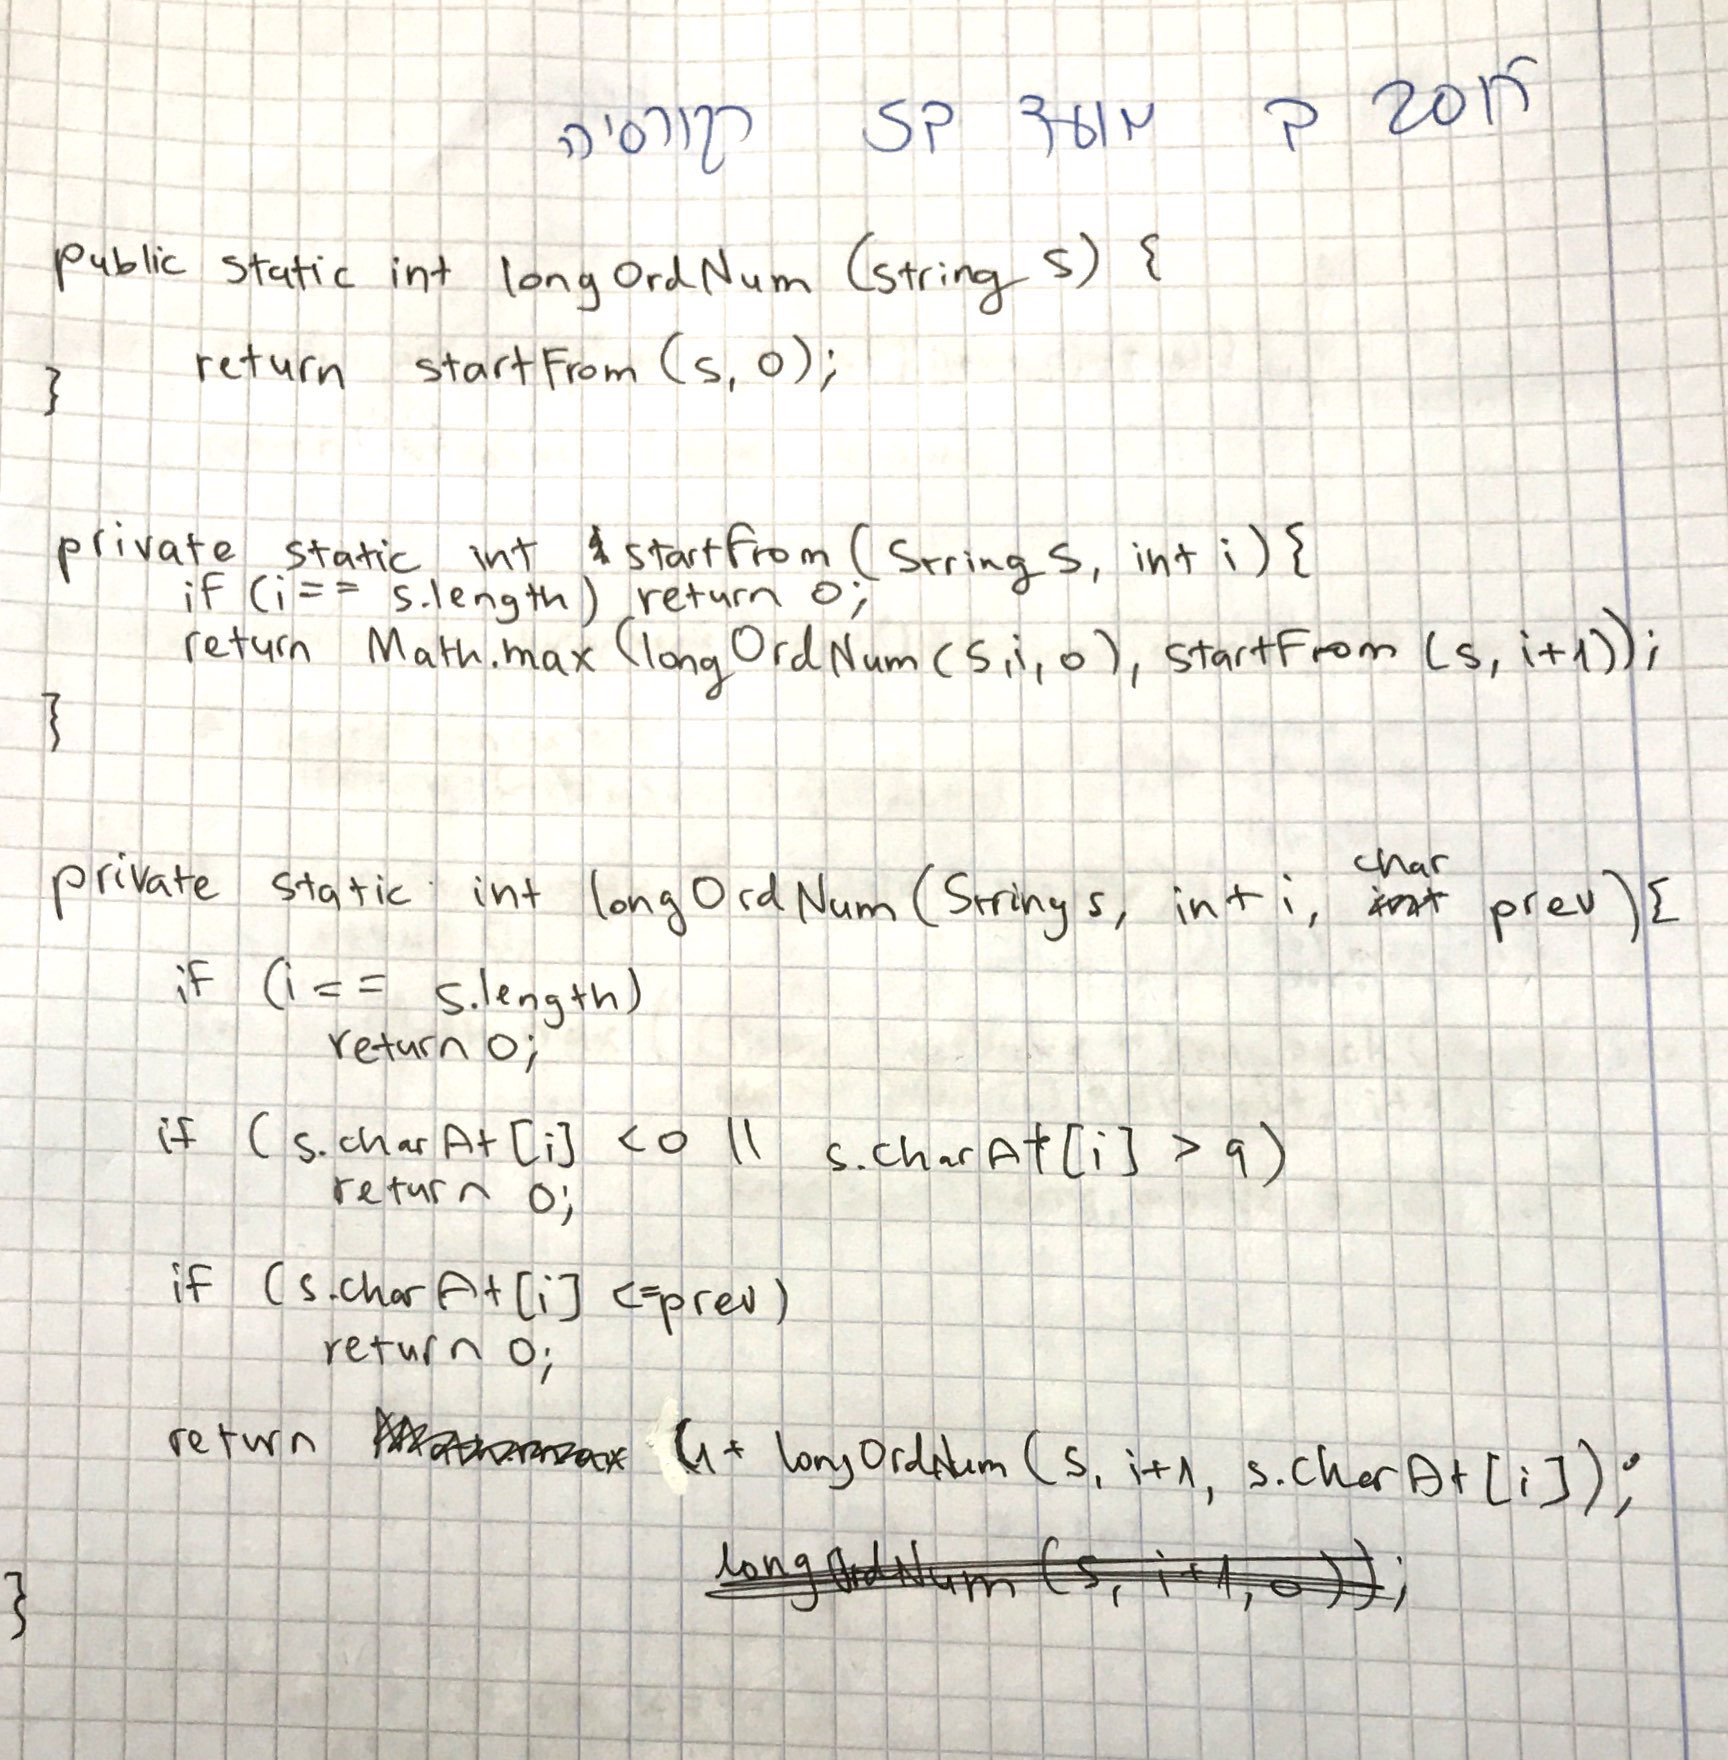 2017 ק מועד 52 רקורסיה
public static int longOrdNum (string s) {
return startFrom (s, 0);
}
private static int startFrom (String s, int i) {
if (i == s.length) return 0;
return Math.max (longOrdNum (s, i, 0), startFrom (s, i+1));
}
private static int longOrdNum (String s, int i, char int prev) {
if (i == s.length)
return 0;
if (s.charAt[i] <0 || s.charAt[i] > 9)
return 0;
if (s.charAt[i] <=prev)
return 0;
return Math.max (1+ longOrdNum (s, i+1, s.charAt[i]);
longOrdNum (s, i+1, 0));
}